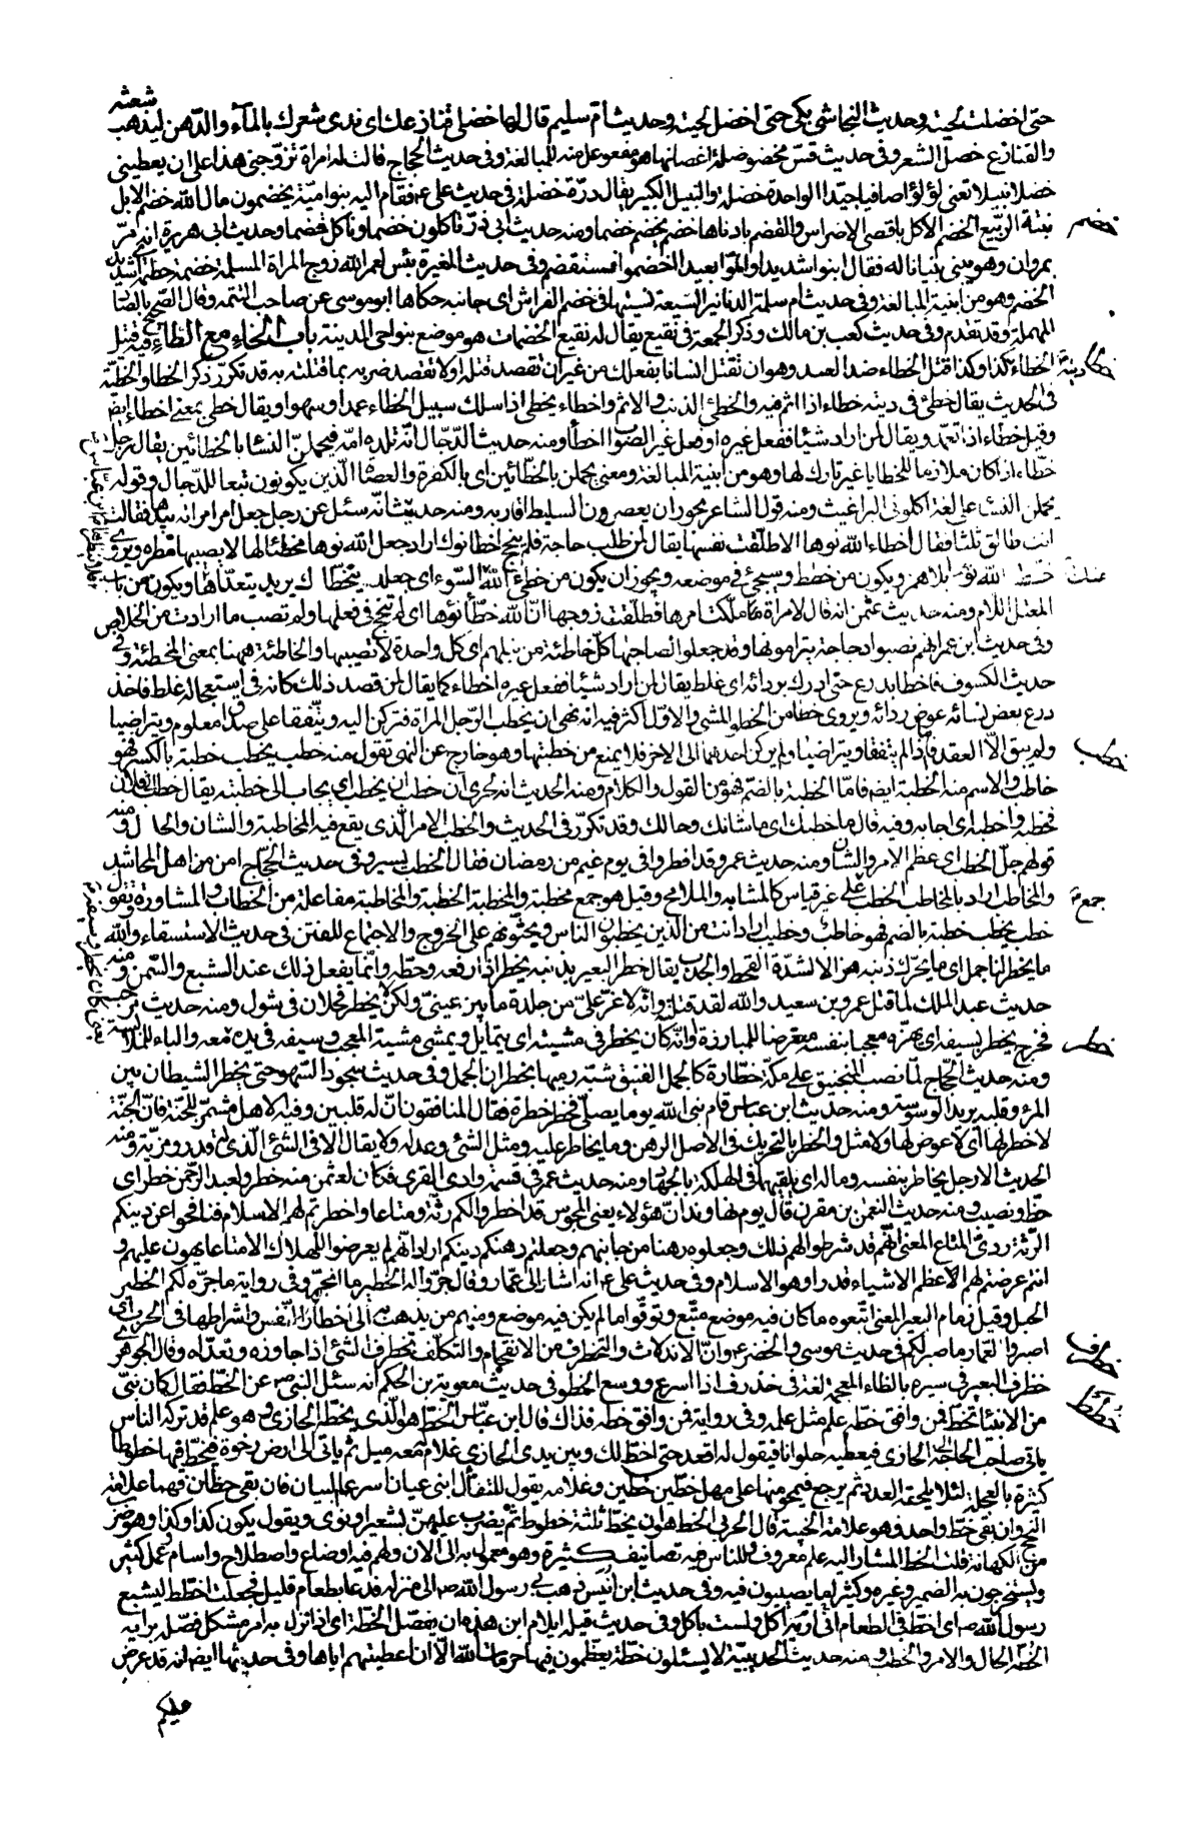 حتى اخضلت لحيته وحديث النجاشى بكى حتى اخضل لحيته وحديث ام سليم قال لها خضلى قنازعك اى ندى شعرك بالمآء والدهن ليذهب شعثه
والقنازع خصل الشعر وفى حديث قس مخضوضلة اغصانها هو مفعوعلة منه للمبالغة وفى حديث الحجاج قالت له امراة تزوجنى هذا على ان يعطينى
خضلا نبيلا تعنى لؤلؤا صافيا جيدا الواحدة خضلة والنبيل الكبير يقال درة خضلة فى حديث على ع فقام اليه بنوامية يخضمون مال الله خضم الابل
خضم
نبتة الربيع الخضم الاكل باقصى الاضراس والقضم بادناها خضم يخضم خضما ومنه حديث ابى ذر تاكلون خضما وناكل قضما وحديث ابى هريرة انه مر
بمروان وهو يبنى بنيانا له فقال ابنوا شديدا واملوا بعيدا واخضموا فسنقضم وفى حديث المغيرة بئس لعمر الله زوج المراة المسلمة خضمة حطمة اى شديد
الخضم وهو من ابنية المبالغة وفى حديث ام سلمة الدنانير السبعة نسيتها فى خضم الفراش اى جانبه حكاها ابو موسى عن صاحب التتمه وقال الصحيح بالصاد
المهملة وقد تقدم وفى حديث كعب بن مالك وذكر الجمعة فى نقيع يقال له نقيع الخضمات هو موضع بنواحى المدينة باب الخاء مع الطاء فيه قتيل
الخطاء كذا وكذا قتل الخطاء ضد العمد وهو ان تقتل انسانا بفعلك من غير ان تقصد قتله او لا تقصد ضربه بما قتلته به قد تكرر ذكر الخطا والخطيئة
فى الحديث يقال خطئ فى دينه خطاء اذا اثم فيه والخطئ الذنب والاثم واخطاء يخطى اذا سلك سبيل الخطاء عمدا وسهوا ويقال خطى بمعنى اخطاء ايضا
وقيل خطاء اذا تعمد ويقال لمن اراد شيئا ففعل غيره او فعل غير الصواب اخطا ومنه حديث الدجال انه تلده امه فيحملن النساء بالخطائين يقال رجل
خطاء اذا كان ملازما للخطايا غير تارك لها وهو من ابنية المبالغة ومعنى يحملن بالخطائين اى بالكفرة والعصاة الذين يكونون تبعا للدجال وقوله
يحملن النساء على لغة اكلونى البراغيث ومنه قول الشاعر بحوران يعصرون السليط اقاربه ومنه حديث انه سئل عن رجل جعل امر امراته بيدها فقالت
انت طالق ثلثا فقال اخطاء الله نوها الا طلقت نفسها يقال لمن طلب حاجة فلم ينجح اخطا نوك اراد جعل الله نوها مخطئا لها لا يصيبها مطره ويروى
الله نوها بلا همز ويكون من خطط وسيجئ فى موضعه ويجوز ان يكون من خطى الله عنك السوء اى جعله يتخطاك يريد يتعداها ويكون من باب
المعتل اللام ومنه حديث عثمن انه قال لامراة ملكت امرها فطلقت زوجها ان الله خطا نؤها اى لم تنجح فى فعلها ولم تصب ما ارادت من الخلاص
وفى حديث ابن عمر انهم نصبوا دجاجة يترامونها وقد جعلوا لصاحبها كل خاطئة من نبلهم اى كل واحدة لا تصيبها والخاطئة ههنا بمعنى المخطئة وفى
حديث الكسوف فاخطا بدرع حتى ادرك بردائه اى غلط يقال لمن اراد شيئا ففعل غيره اخطاء كما يقال لمن قصد ذلك كانه فى استعجاله غلط فاخذ
درع بعض نسائه عوض ردائه ويروى خطا من الخطو المشى والاول اكثر فيه انه نهى ان يخطب الرجل المراة فتركن اليه ويتفقا على صداق معلوم ويتراضيا
خطب
ولم يبق الا العقد فاذا لم يتفقا ويتراضيا ولم يركن احدهما الى الاخر فلا يمنع من خطبتها وهو خارج عن النهى تقول منه خطب يخطب خطبة بالكسر فهو
خاطب والاسم منه الخطبة ايضا فاما الخطبة بالضم فهو من القول والكلام ومنه الحديث انه لحرى ان خطب ان يخطب اى يجاب الى خطبته يقال خطب الى فلان
فخطبه واخطبه اى اجابه وفيه قال ما خطبك اى ما شانك وحالك وقد تكرر فى الحديث والخطب الامر الذى يقع فيه المخاطبة والشان والحال ومنه
قولهم جل الخطب اى عظم الامر والشان ومنه حديث عمر وقد افطروا فى يوم غيم من رمضان فقال الخطب يسير وفى حديث الحجاج امن من اهل المحاشد
والمخاطب اراد بالمخاطب الخطب على غير قياس كالمشابه والملامح وقيل هو جمع مخطبة والمخطبة الخطبة والمخاطبة مفاعلة من الخطاب والمشاورة يقول
خطب يخطب خطبة بالضم فهو خاطب وخطيب اراد انت من الذين يخطبون الناس ويحثونهم على الخروج والاجتماع للفتن فى حديث الاستسقاء والله
ما يخطر لنا جمل اى ما يحرك ذنبه هزالا لشدة القحط والجدب يقال خطر البعير بذنبه يخطر اذا رفعه وحطه وانما يفعل ذلك عند الشبع والسمن ومنه
حديث عبد الملك لما قتل عمرو بن سعيد والله لقد قتلته وانه لاعز على من جلدة ما بين عينى ولكن لا يخطر فحلان فى شول ومنه حديث مرحب
خطر
فخرج يخطر بسيفه اى يهزه معجبا بنفسه متعرضا للمبارزة او انه كان يخطر فى مشيته اى يتمايل ويمشى مشية المعجب وسيفه فى يده معه والباء للملابسة
ومنه حديث الحجاج لما نصب المنجنيق على مكة خطارة كالجمل الفنيق شبه رميها بخطران الجمل وفى حديث سجود السهو حتى يخطر الشيطان بين
المرء وقلبه يريد الوسوسة ومنه حديث ابن عباس قام نبى الله يوما يصلى فخطر خطرة فقال المنافقون ان له قلبين وفيه الا هل مشمر للجنة فان الجنة
لا خطر لها اى لا عوض لها ولا مثل والخطر بالتحريك فى الاصل الرهن وما يخاطر عليه ومثل الشئ وعدله ولا يقال الا فى الشئ الذى له قدر ومزية ومنه
الحديث الا رجل يخاطر بنفسه وماله اى يلقيهما فى الهلكة بالجهاد ومنه حديث عمر فى قسمة وادى القرى فكان لعثمن منه خطر ولعبد الرحمن خطر اى
حظ ونصيب ومنه حديث النعمن بن مقرن قال يوم نهاوند ان هؤلاء يعنى المجوس قد اخطروا لكم رثة ومتاعا واخطرتم لهم الاسلام فنافحوا عن دينكم
الرثة ردئ المتاع المعنى انهم قد شرطوا لهم ذلك وجعلوه رهنا من جانبهم وجعلتم رهنكم دينكم اراد انهم لم يعرضوا للهلاك الا متاعا يهون عليهم و
انتم عرضتم لهم لاعظم الاشياء قدرا وهو الاسلام وفى حديث على ع انه اشار الى عمار وقال جروا له الخطير ما انجر وفى رواية ما جره لكم الخطير
الحبل وقيل زمام البعير المعنى اتبعوه ما كان فيه موضع متبع وتوقوا ما لم يكن فيه موضع ومنهم من يذهب الى اخطار النفس واشراطها فى الحرب اى
خطرف
اصبروا لعمار ما صبر لكم فى حديث موسى والخضر ع وان الاندلاث والتخطرف من الانقحام والتكلف تخطرف الشئ اذا جاوزه وتعداه وقال الجوهرى
خظرف البعير فى سيره بالظاء المعجمة لغة فى خذرف اذا اسرع ووسع الخطو فى حديث معوية بن الحكم انه سئل النبى ص عن الخط فقال كان نبى
خطط
من الانبياء يخط فمن وافق خطه علم مثل علمه وفى رواية فمن وافق خطه فذاك قال ابن عباس الخط هو الذى يخطه الحازى وهو علم قد تركه الناس
ياتى صاحب الحاجة الحازى فيعطيه حلوانا فيقول له اقعد حتى اخط لك وبين يدى الحازى غلام معه ميل ثم ياتى الى ارض رخوة فيخط فيها خطوطا
كثيرة بالعجلة لئلا يلحقه العدد ثم يرجع فيمحو منها على مهل خطين خطين وغلامه يقول للتفأل ابنى عيان اسرعا البيان فان بقى خطان فهما علامة
النجح وان بقى خط واحد فهو علامة الخيبة قال الحربى الخط هو ان يخط ثلثة خطوط ثم يضرب عليهن بشعير او نوى ويقول يكون كذا وكذا وهو ضرب
من الكهانة قلت الخط المشار اليه علم معروف وللناس فيه تصانيف كثيرة وهو معمول به الى الان ولهم فيه اوضاع واصطلاح واسام وعمل كثير
ويستخرجون به الضمير وغيره وكثيرا ما يصيبون فيه وفى حديث ابن انيس ذهب بى رسول الله ص الى منزله فدعا بطعام قليل فجعلت اخطط ليشبع
رسول الله ص اى اخط فى الطعام انى اريه اكل ولست باكل وفى حديث قيلة ايلام ابن هذه ان يفصل الخطة اى اذا نزل به امر مشكل فصله برايه
الخطة الحال والامر والخطب ومنه حديث الحديبية لا يسئلون خطة يعظمون فيها حرمات الله الا ان اعطيتهم اياها وفى حديثها ايضا انه قد عرض
عليكم